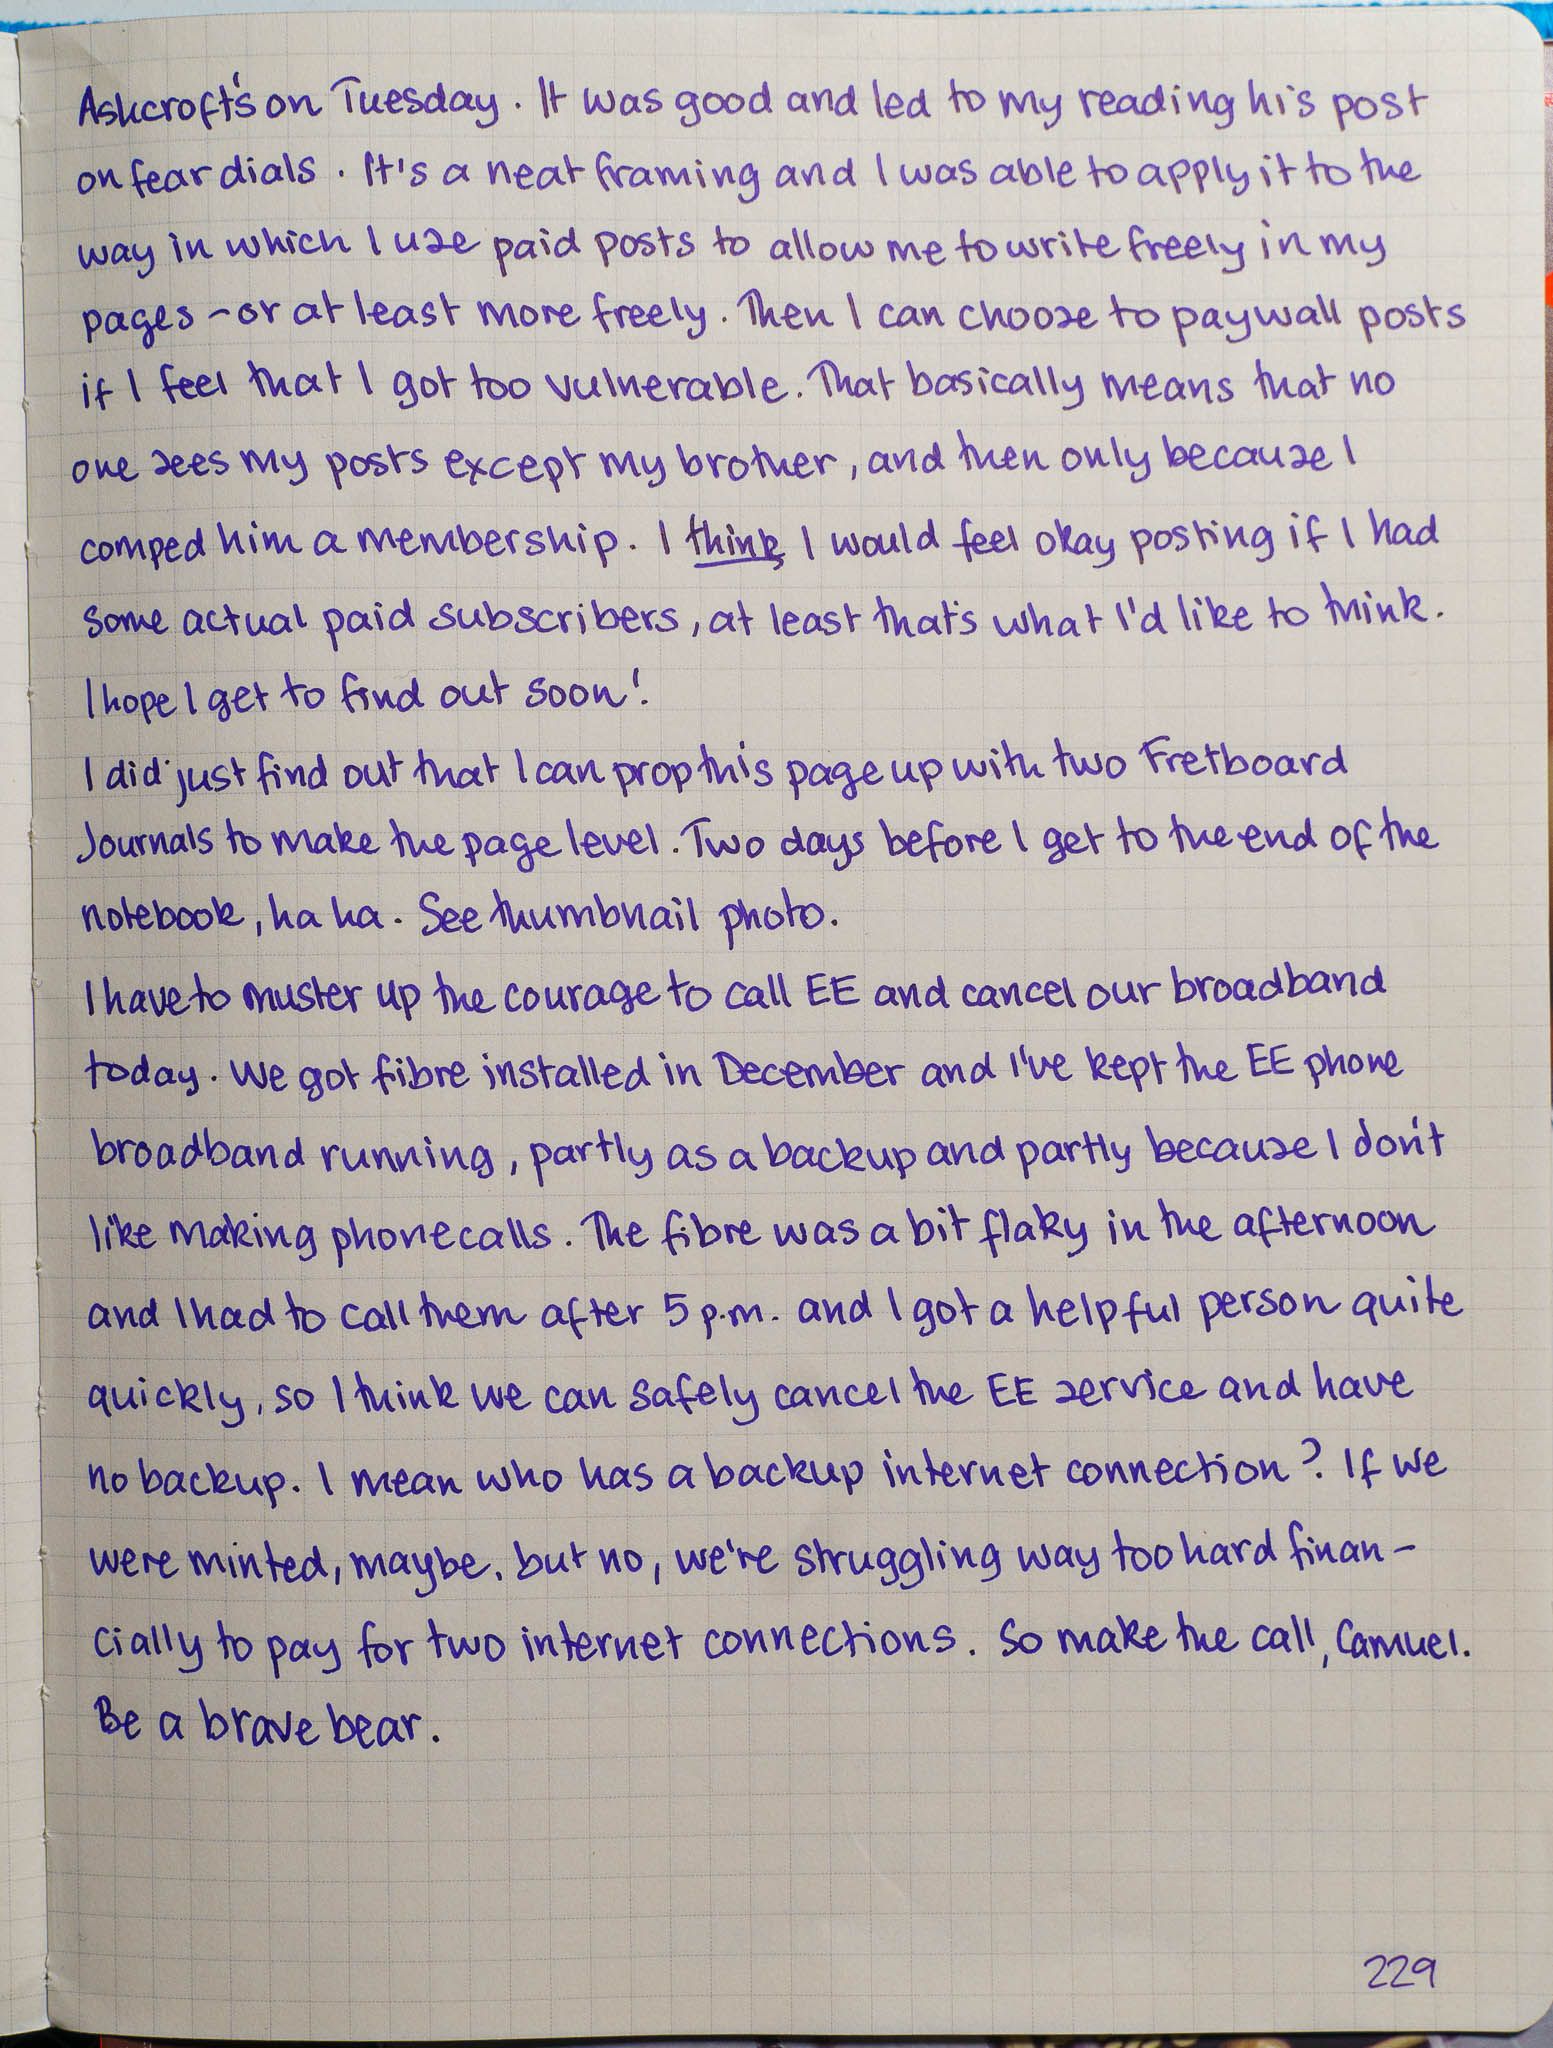 Ashcroft's on Tuesday. It was good and led to my reading his post
on fear dials. It's a neat framing and I was able to apply it to the
way in which I use paid posts to allow me to write freely in my
pages - or at least more freely. Then I can choose to paywall posts
if I feel that I got too vulnerable. That basically means that no
one sees my posts except my brother, and then only because I
comped him a membership. I think I would feel okay posting if I had
some actual paid subscribers, at least that's what I'd like to think.
I hope I get to find out soon!
I did just find out that I can prop this page up with two Fretboard
Journals to make the page level. Two days before I get to the end of the
notebook, ha ha. See thumbnail photo.
I have to muster up the courage to call EE and cancel our broadband
today. We got fibre installed in December and I've kept the EE phone
broadband running, partly as a backup and partly because I don't
like making phonecalls. The fibre was a bit flaky in the afternoon
and I had to call them after 5 p.m. and I got a helpful person quite
quickly, so I think we can safely cancel the EE service and have
no backup. I mean who has a backup internet connection? If we
were minted, maybe, but no, we're struggling way too hard finan-
cially to pay for two internet connections. So make the call, Camuel.
Be a brave bear.
229